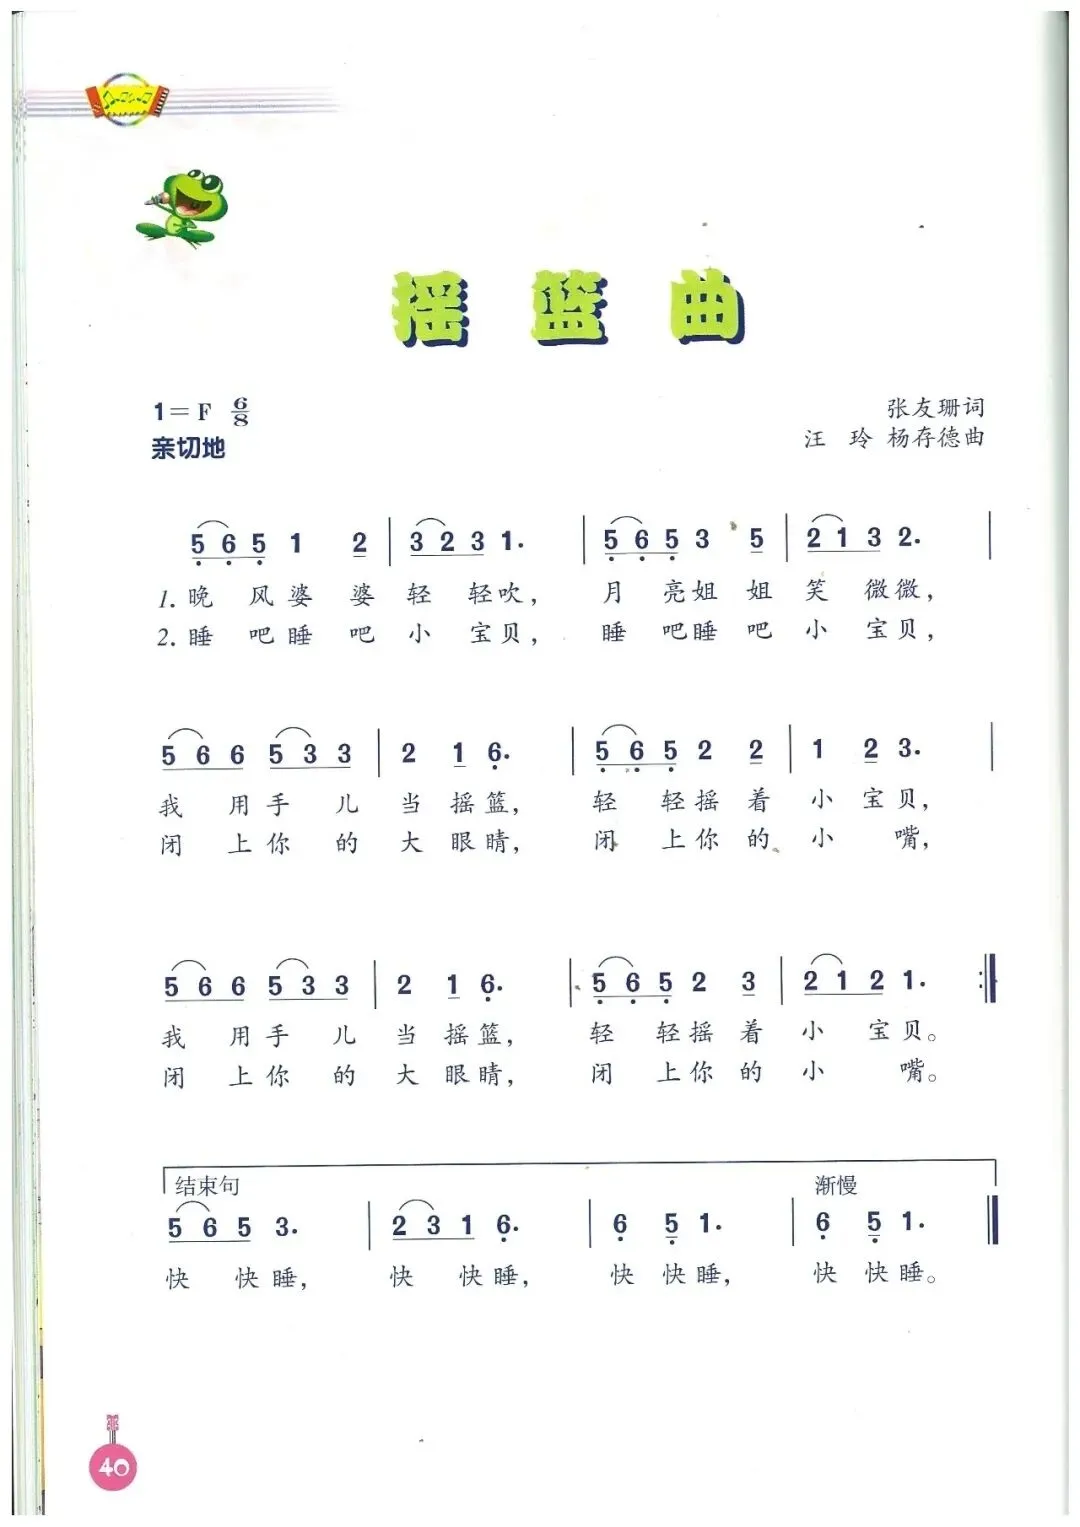 摇篮曲
1=F 6/8
亲切地
张友珊词
汪玲 杨存德曲
5 6 5 1 2 | 3 2 3 1. | 5 6 5 3 5 | 2 1 3 2. |
1. 晚 风婆 婆 轻 轻吹， 月 亮姐 姐 笑 微微，
2. 睡 吧睡 吧 小 宝贝， 睡 吧睡 吧 小 宝贝，
5 6 6 5 3 3 | 2 1 6. | 5 6 5 2 2 | 1 2 3. |
我 用手 儿 当 摇篮， 轻 轻摇 着 小 宝贝，
闭 上你 的 大 眼睛， 闭 上你 的 小 嘴，
5 6 6 5 3 3 | 2 1 6. | 5 6 5 2 3 | 2 1 2 1. :|
我 用手 儿 当 摇篮， 轻 轻摇 着 小 宝贝。
闭 上你 的 大 眼睛， 闭 上你 的 小 嘴。
结束句 渐慢
5 6 5 3. | 2 3 1 6. | 6 5 1. | 6 5 1. ‖
快 快睡， 快 快睡， 快 快睡， 快 快睡。
40